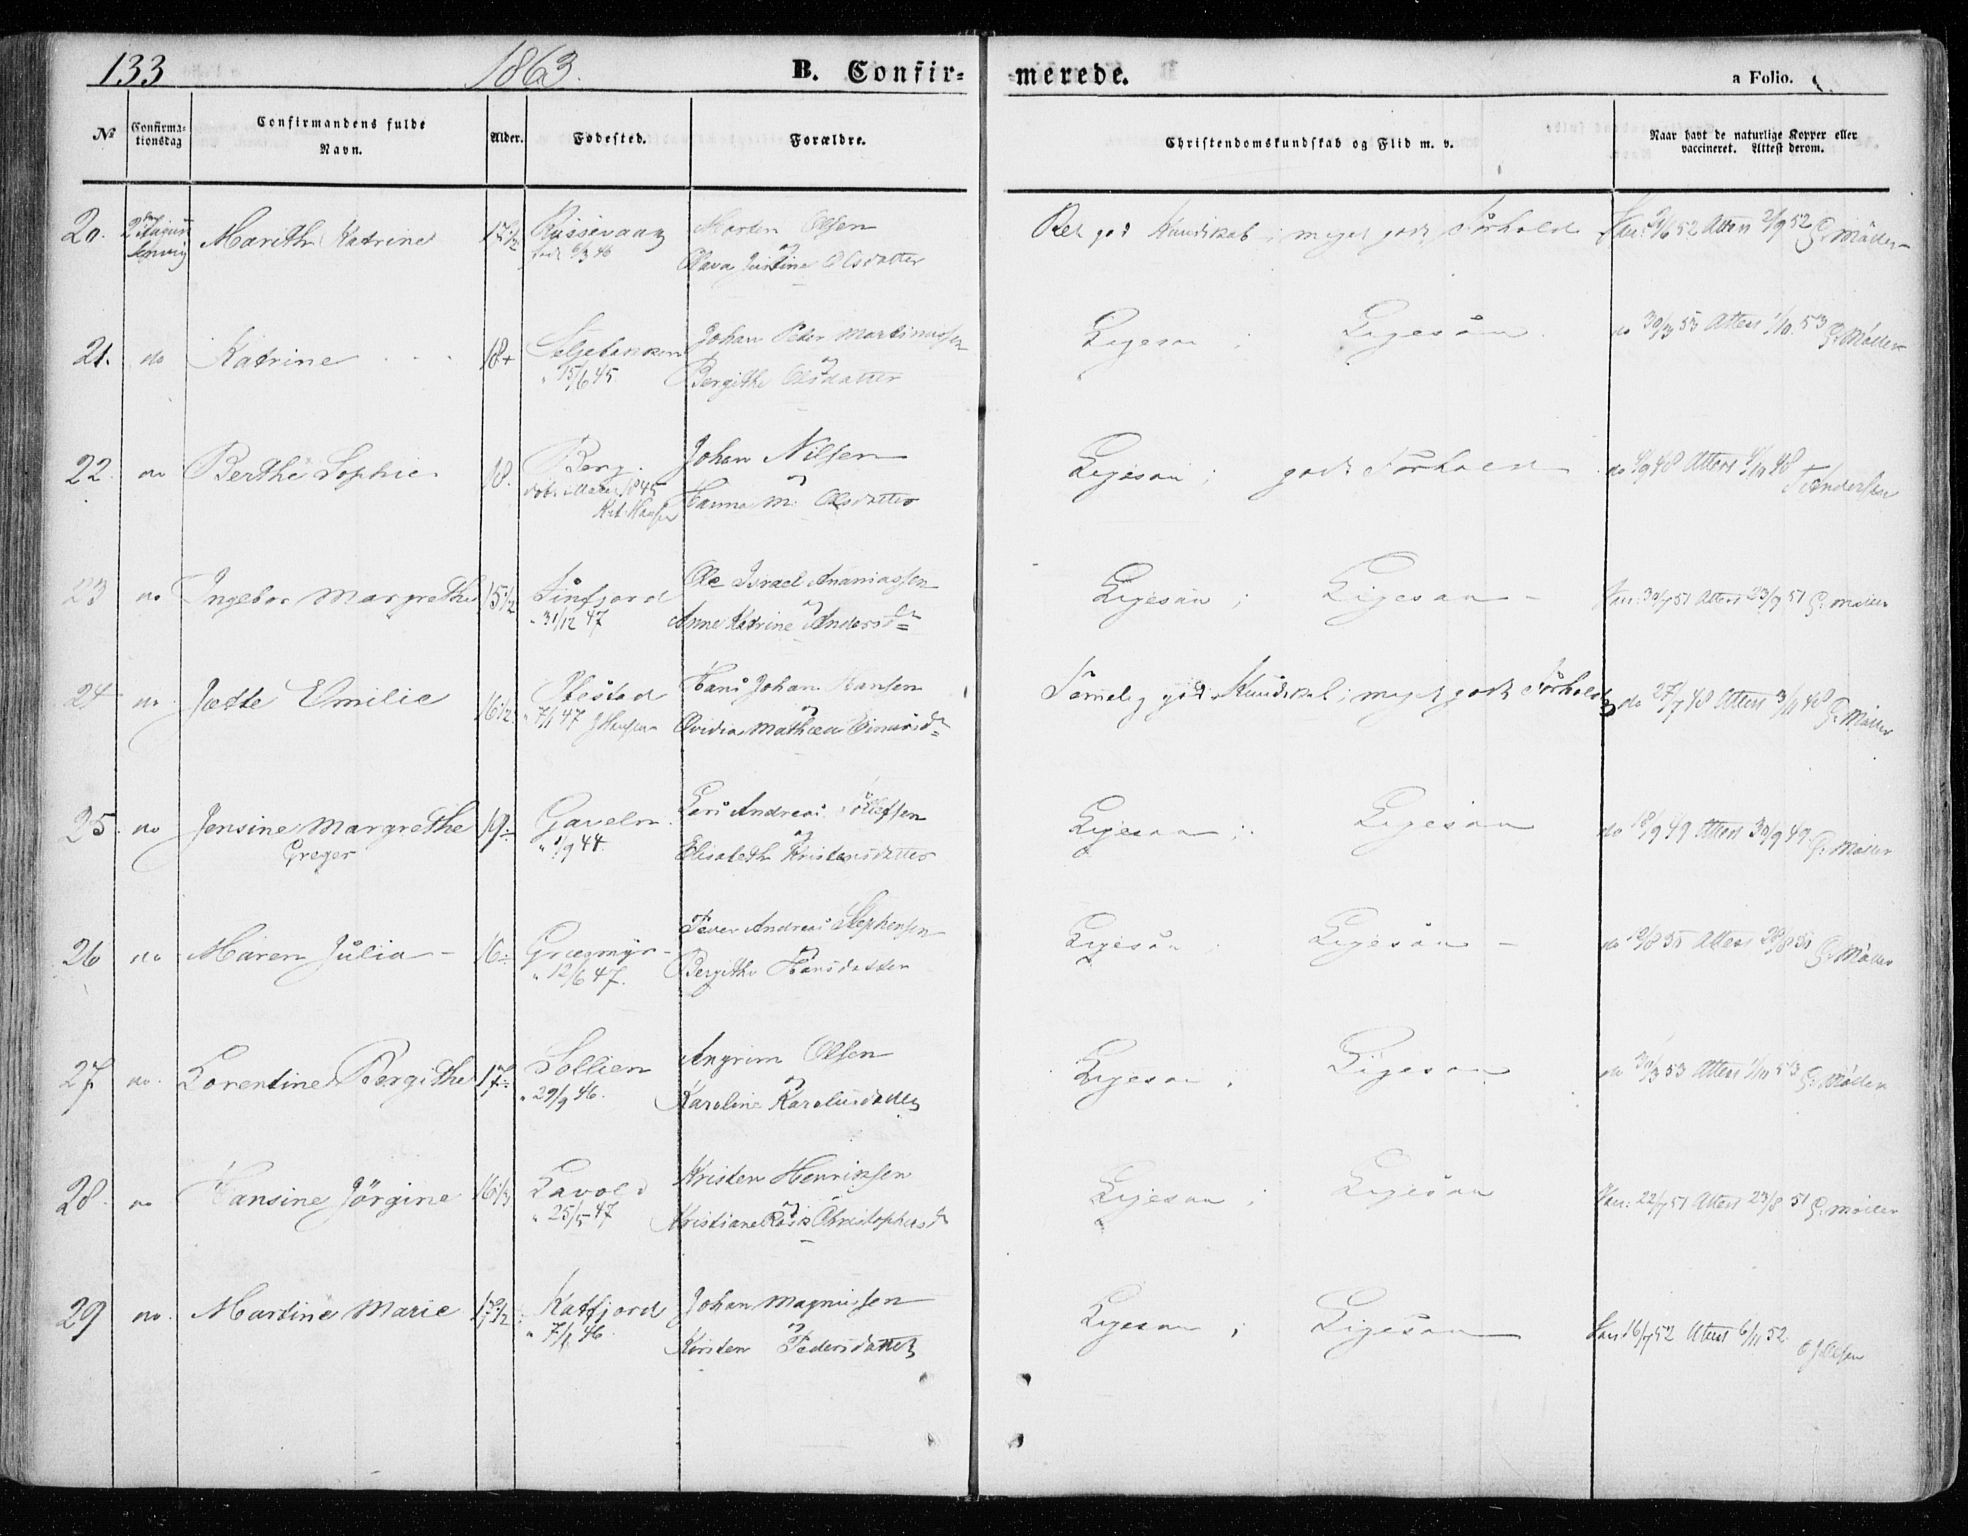 133 1863. B. Confir= merede. a Folio.
№ Confirma-tionsdag Confirmandens fulde Navn. Alder. Fødested. Forældre. Christendomskundskab og Flid m. v. Naar havt de naturlige Kopper eller vaccineret. Attest derom.
20. Marith Katrine 17½ Russevaag Morten Olsen Ret god Kundskab; meget godt Forhold 52 Attest 2/9 52 G. Møller
født 6/3 46 og Olava Justine Olsdatter
21. do Katrine 18+ Johan Peter Martinussen Ligesaa; Ligesaa do 30/3 53 Attest 1/10 53 G. Møller
" 15/6 45. og Bergithe Olsdatter
22. do Berthe Sophie 18. Berg. Johan Nilsen Ligesaa; godt Forhold do Attest 48 Andersen
1845 og Hanna M. Olsdatter
23 do Ingebor Margrethe 15½ Finfjord Ole Israel Ananiassen Ligesaa; Ligesaa Vac: 30/7 51 Attest 23/9 51 G. Møller
" 31/12 47 og Anne Katrine Andersdr
24 do Jette Emilie 16½ Hans Johan Hansen Temelig god Kundskab; meget godt Forhold do 27/7 48 Attest 3/11 48 G. Møller
" 7/1 47 og Ovidia Mathea Einarsdr
25. do Jensine Margrethe 19. Gaveln Lars Andreas Ligesaa; Ligesaa do 18/9 49 Attest 30/9 49 G. Møller
Greger " 1/9 44. og Elisabeth Kristensdatter
26 do Maren Julia 16. Græsmyr Peder Andreas Stephensen Ligesaa; Ligesaa do Attest G. Møller
" 12/6 47. og Bergithe Hansdatter
27 do. Lorentine Bergithe 17. Sollien Angrim Olsen Ligesaa; Ligesaa do 30/3 53 Attest 1/10 53 G. Møller
" 29/9 46. og Karoline Karolusdatter
28. do Hansine Jørgine 16¼ Lavold Kristen Henriksen Ligesaa; Ligesaa Vac: 22/7 51 Attest 23/8 51 G. Møller
" 25/5 47 og Kristiane Rasis Christophersdr
29 do. Martine Marie 17½ Katfjord Johan Magnussen Ligesaa; Ligesaa Vac 16/7 52 Attest 6/11 52.
" 7/1 46. og Kirsten Pedersdatter